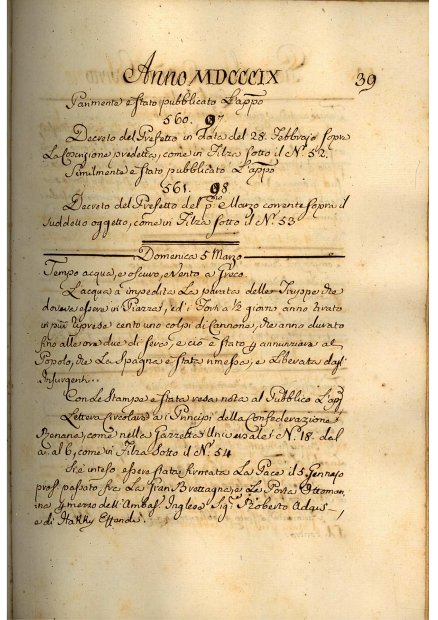 Anno MDCCCIX 39
Parimente è stato pubblicato l'app̃o
560. 97
Decreto del Prefetto in data del 28. Febbrajo sopra
La Coscrizione predetta, come in Filza sotto il N.º 52.
Similmente è stato pubblicato l'app̃o
561. 98
Decreto del Prefetto del p.mo Marzo corrente sopra il
suddetto oggetto, come in Filza sotto il N.º 53
Domenica 5 Marzo
Tempo acqua, e oscuro, e vento a Greco.
L'acqua à impedita La parata delle Truppe che
doveva essere in Piazza, ed i Forti a ½ giorn. anno tirato
in più riprese cento uno colpi di Cannone, che anno durato
fino alle ore due di sera, e ciò è stato p annunziare al
Popolo, che La Spagna è stata rimessa, e Liberata dagl'
Insurgenti.
Con Le Stampe è stata resa nota al Pubblico L'app̃
Lettera Circolare a i Principi della Confederazione
Renana, come nella Gazzetta Universale N.º 18. dal
a al 6, come in Filza Sotto il N.º 54
Si è inteso essere stata firmata La Pace il 5 Gennajo
pross.º passato fra La Gran Brettagna, e La Porta Ottoman-
na p mezzo dell'Ambas. Inglese Sig.r Roberto Adair,
e di Hakky Effendi.